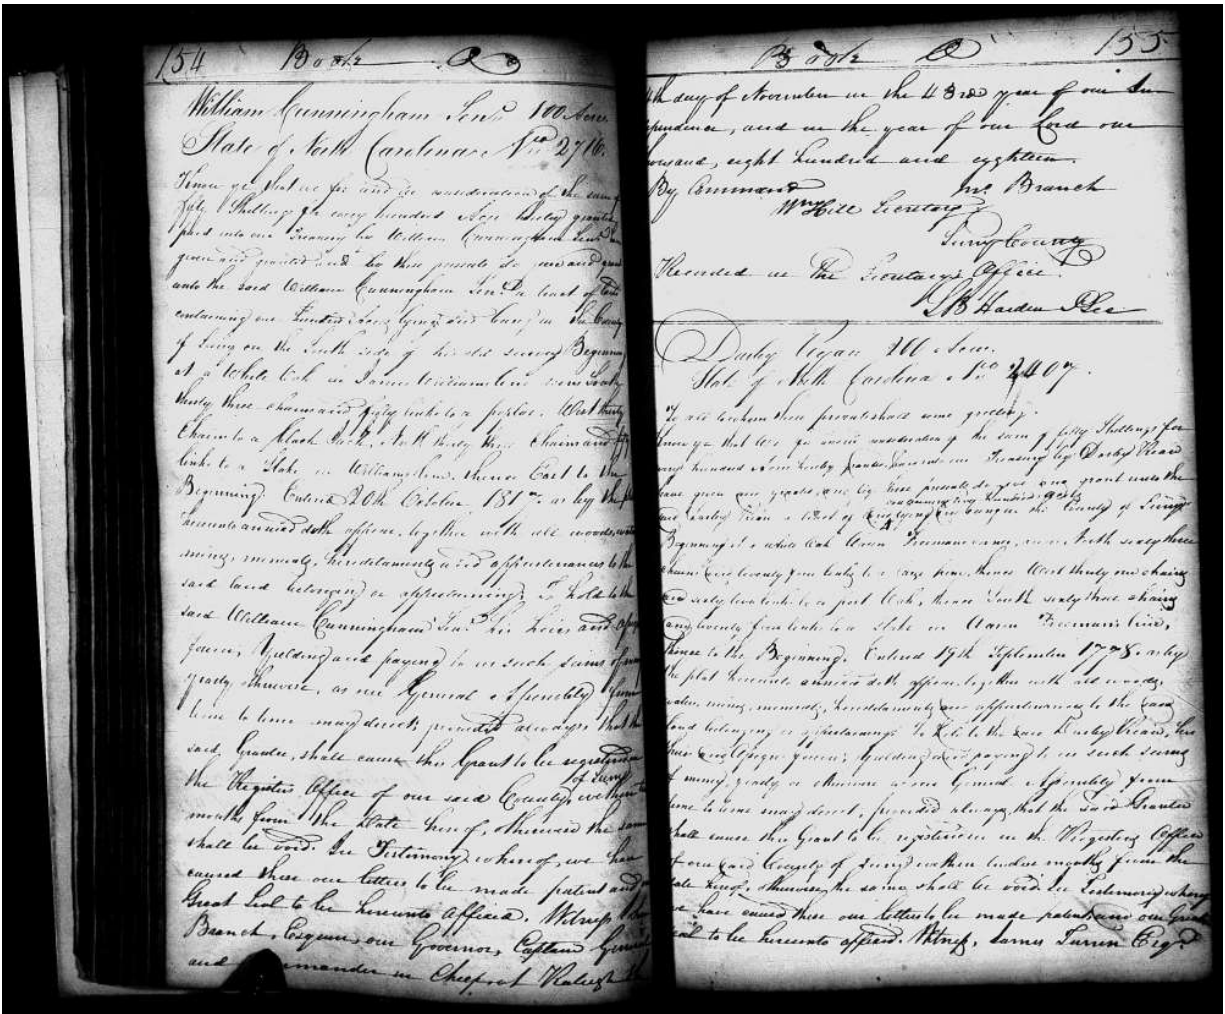 154 Book Q
William Cunningham Senr 100 Acres
State of North Carolina No 2716.
Know ye that we for and in consideration of the sum of
fifty Shillings for every hundred Acres hereby granted
paid into our Treasury by William Cunningham Senr have
given and granted and by these presents do give and grant
unto the said William Cunningham Senr a tract of land
containing one hundred Acres lying and being in the County
of Surry on the South side of his old survey Beginning
at a White Oak in James Williams line runs South
thirty three chains and fifty links to a poplar. West thirty
Chains to a black Jack, North thirty three Chains and fifty
links to a Stake in Williams line, thence East to the
Beginning. Entered 20th October 1817. as by the plat
hereunto annexed doth appear, together with all woods, waters
mines, minerals, hereditaments and appurtenances to the
said land belonging or appertaining; To hold to the
said William Cunningham Senr his heirs and assigns
forever, Yielding and paying to us such sums of money
yearly, otherwise, as our General Assembly from
time to time may direct, provided always that the
said, Grantee, shall cause this Grant to be registered
the Registers Office of our said County of Surry within
months from the date hereof, otherwise the same
shall be void. In Testimony whereof, we have
caused these our letters to be made patent and our
Great Seal to be hereunto affixed. Witness John
Branch, Esquire, our Governor, Captain General
and Commander in Chief at Raleigh the
Book Q 155
4th day of November in the 43rd year of our In
dependence, and in the year of our Lord one
thousand, eight hundred and eighteen.
By Command Jno Branch
Wm Hill Secretary
Surry County
Recorded in The Secretary's Office.
Darby Ryan 200 Acres.
State of North Carolina No 2407.
To all to whom these presents shall come greeting.
Know ye that We for and in consideration of the sum of fifty Shillings for
every hundred Acres hereby granted, paid into our Treasury by Darby Riean
have given and granted, and by these presents do give and grant unto the
containing two hundred acres
said Darby Riean a tract of land lying and being in the County of Surry
Beginning at a white Oak Aaron Freemans corner, runs North sixty three
chains and twenty five links to a large pine, thence West thirty one chains
and sixty two links to a post Oak, thence South sixty three chains
and twenty five links to a stake in Aaron Freeman's line,
thence to the Beginning. Entered 19th September 1778. as by
the plat hereunto annexed doth appear, together with all woods,
waters, mines, minerals, hereditaments and appurtenances to the said
land belonging or appertaining. To Hold to the said Darby Riean, his
heirs and Assigns forever; Yielding and paying to us such sums
of money yearly or otherwise as our General Assembly from
time to time may direct, provided always, that the said Grantee
shall cause this Grant to be registered in the Registers Office
of our said County of Surry within twelve months from the
date hereof, otherwise the same shall be void. In Testimony whereof
we have caused these our letters to be made patent, and our Great
Seal to be hereunto affixed. Witness, James Turner Esqr.